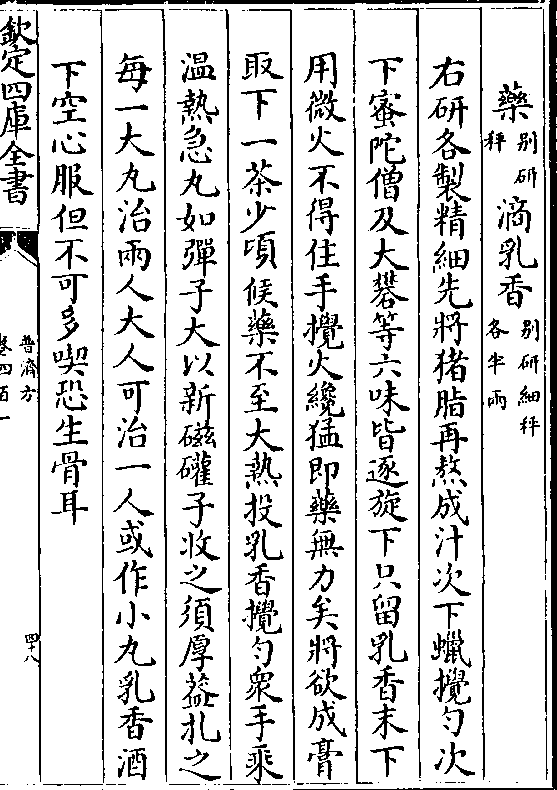 藥別研秤滴乳香別研細秤各半兩
右研各製精細先將猪脂再熬成汁次下蠟攪勻次
下蜜陀僧及大礬等六味皆逐旋下只留乳香末下
用微火不得住手攪火纔猛即藥無力矣將欲成膏
取下一茶少頃候藥不至大熱投乳香攪勻衆手乘
温熱急丸如彈子大以新磁礶子收之須厚葢扎之
每一大丸治兩人大人可治一人或作小丸乳香酒
下空心服但不可多喫恐生骨耳
欽定四庫全書
普濟方
卷四百一
四十八